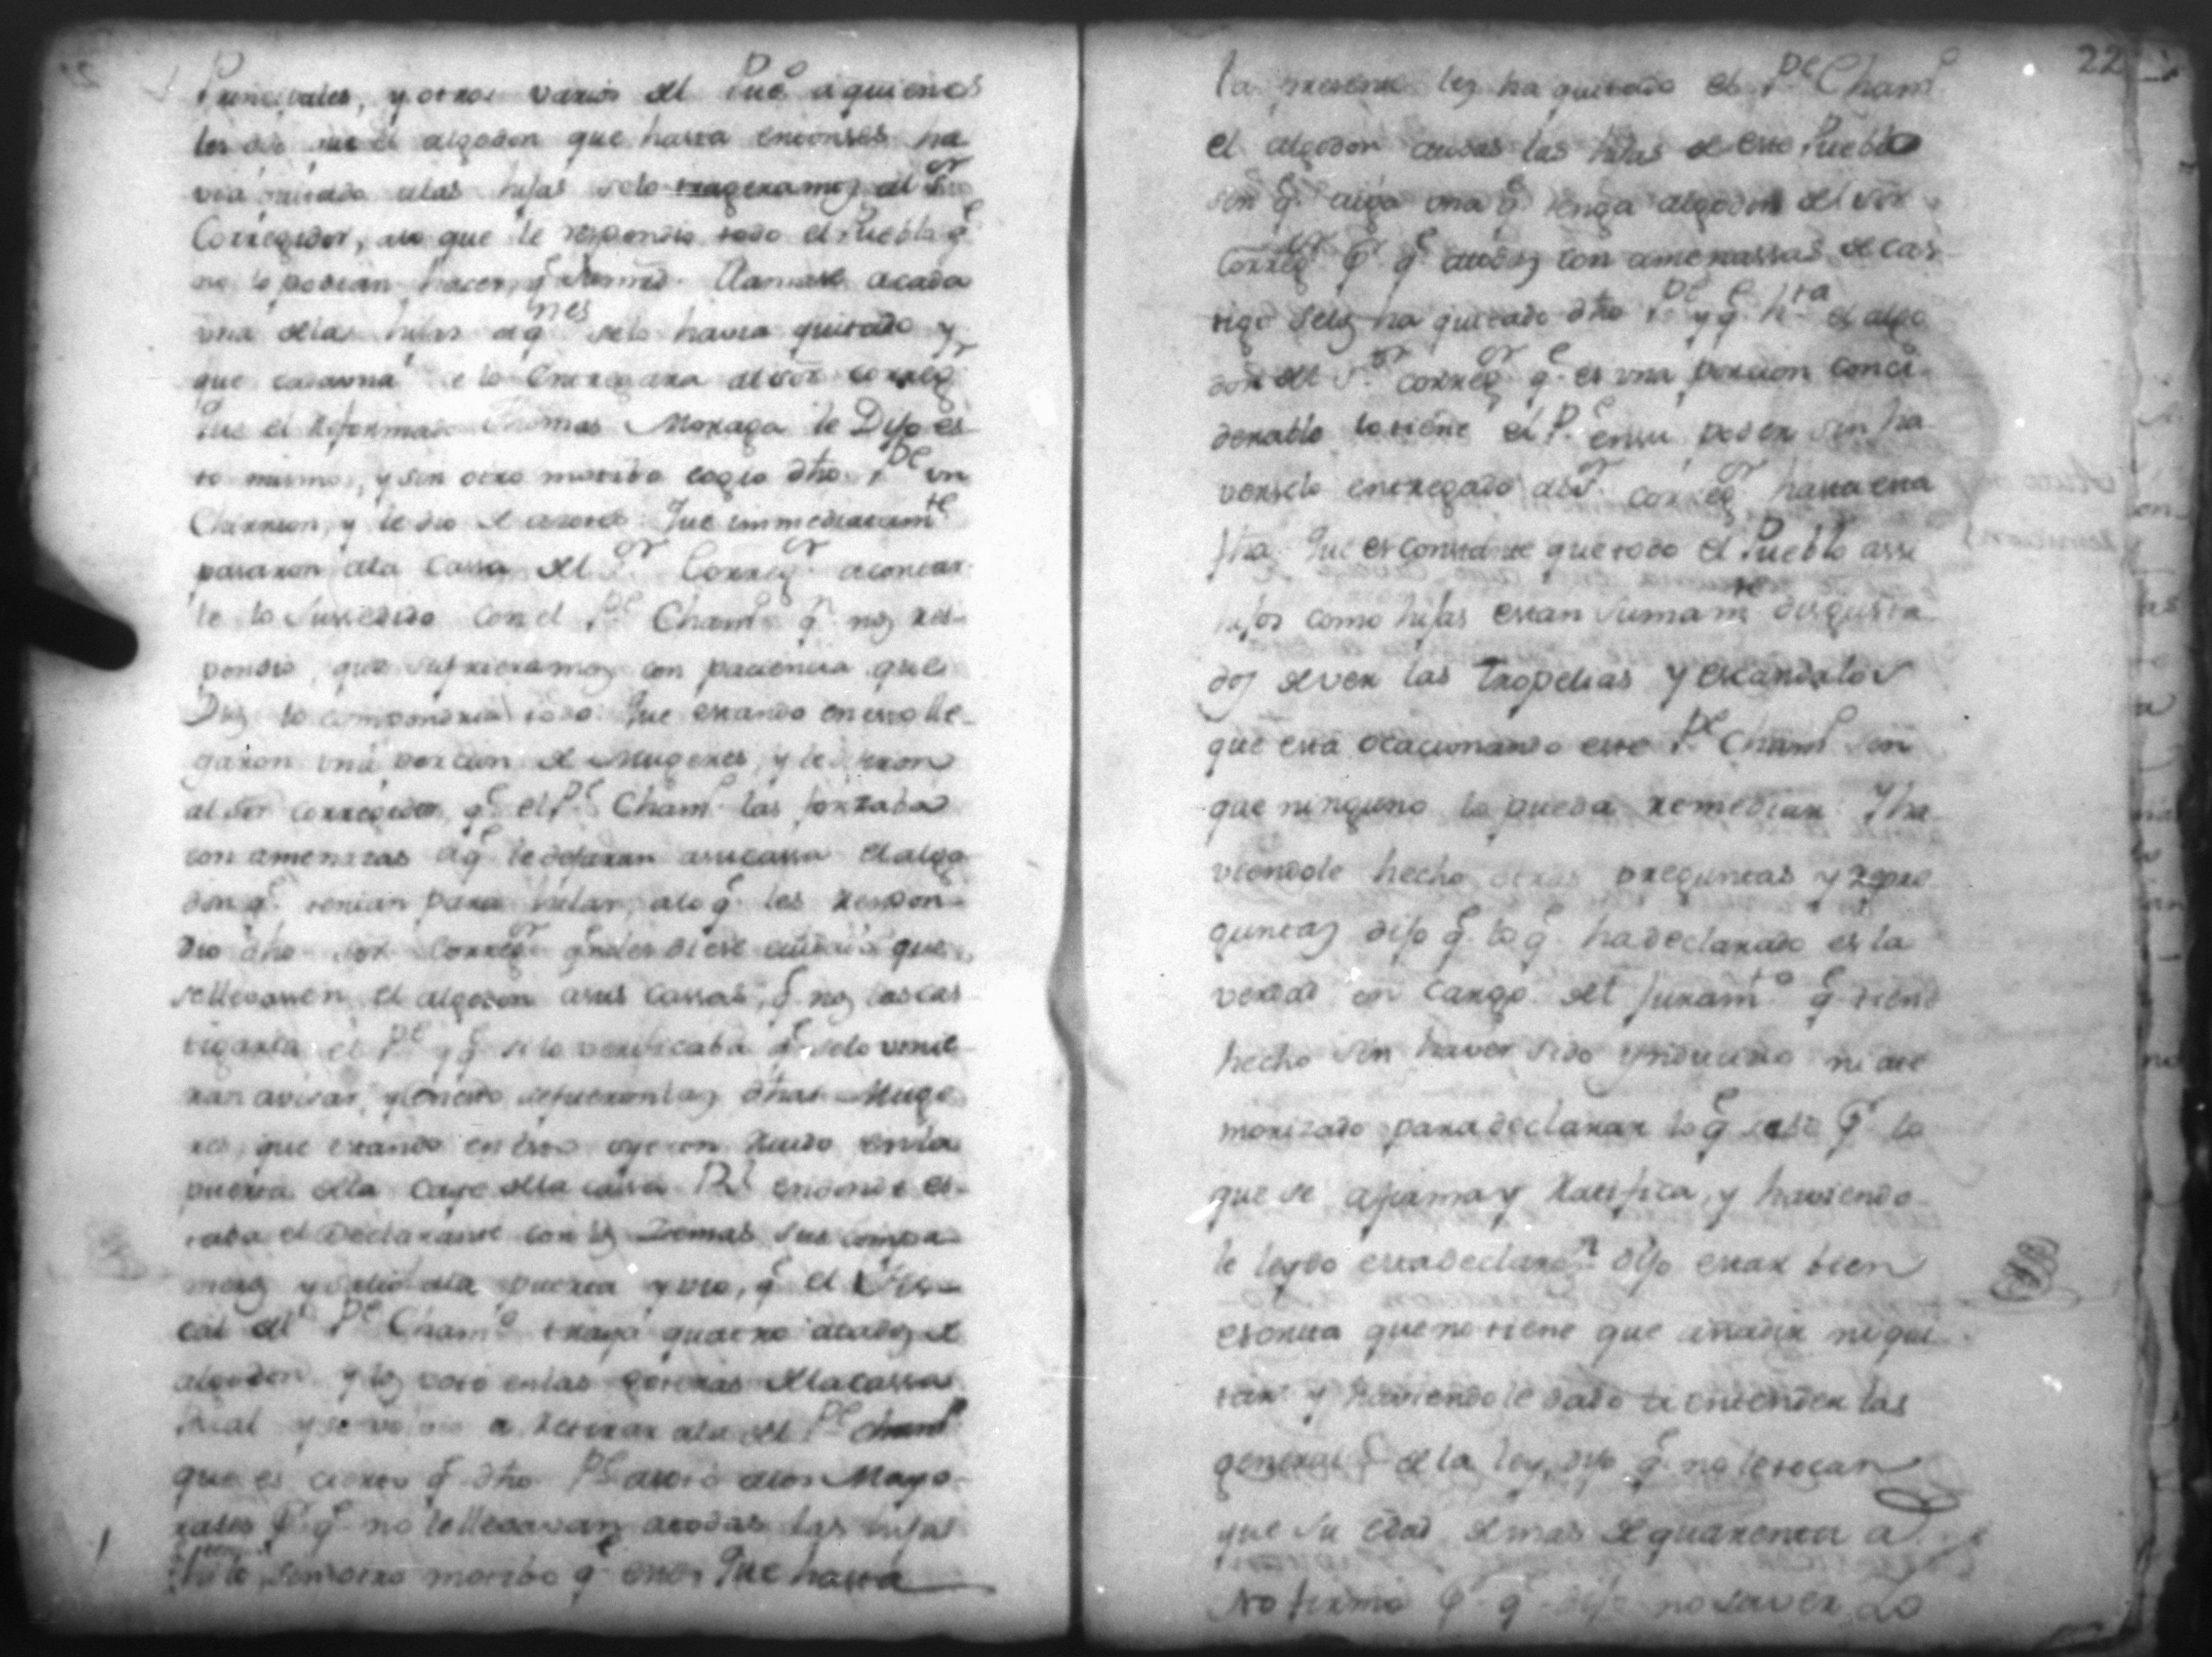 Principales, y otros varios del Puᵒ aquienes
les dijo que el algodon que hasta entonses ha
via quitado alas hijas selo trageramos al Sᵒʳ
Corregidor, alo que le respondio todo el Pueblo qᵉ
no lo podian hacer, qᵉ llamase acada
una delas hijas aqⁿᵉˢ selo havia quitado y
que cadauna se lo entregara alsoʳ corregᵒʳ
Que el Reformado Thomas Moraga le Dijo es
to mismo, y sin otro motibo cogio dho Pᵉ un
Chirrion, y le dio de asotes. Que immediatamᵗᵉ
pasaron ala Cassa del Sᵒʳ Corregᵒʳ acontar
le lo Sussedido con el Pᵉ Chamᵒ qᵉ nos res-
pondio, que sufrieramos con paciencia que
Dios lo compondria todo. Que estando enesto lle-
garon una porcion de Mugeres, y le dijeron
al soʳ corregidor, qᵉ el Pᵉ Chamᵒ las forzaba
con amenazas aqᵉ ledejaran ensucassa elalgo
don qᵉ tenian para hilar, alo qᵉ les respon-
dio dho soʳ Corregᵒʳ qᵉ nolesdiese cuidado que
sellevassen el algodon asus cassas, qᵉ no lascas
tigaria el Pᵉ y qᵉ si lo verificaba qᵉ selo vinie
ran avisar, y enesto sefueronlas dhas Muge
res, que estando en esto oyeron Ruido enla
puerta dela caye dela cassa Rˡ endonde es-
taba el Declarante con los Demas sus compa
 y salio ala puerta y vio, qᵉ el Fis-
cal del Pᵉ Chamᵒ traya quatro atados de
algodon y los voto enlas goteras delacassa
Real y se volvio a Retirar ala del Pᵉ Chamᵒ
que es cierto qᵉ dho Pᵉ asoto alos Mayo-
rales Pʳ qᵉ no lellevavan atodas las hijas
 sin otro motibo qᵉ este. Que hasta
22
la presente les ha quitado el Pᵉ Chamᵒ
el algodon atodas las hijas de este Pueblo
sin qᵉ aiga una qᵉ tenga algodon del soʳ
Corregᵒʳ Pʳ qᵉ atodas con amenassas de cas
tigo selos ha quitado dho Pᵉ y qᵉ hᵗᵃ el algo
don del Sᵒʳ corregᵒʳ qᵉ es una porcion conci-
derable lotiene el Pᵉ ensu poder sin ha
verselo entregado alSʳ corregᵒʳ hasta esta
fha. Que es constante quetodo el Pueblo assi
hijos como hijas estan sumamᵗᵉ disgusta
dos de ver las tropelias y escandalos
que esta ocacionando este Pᵉ Chamᵒ sin
que ninguno lo pueda remediar. Y ha
viendole hecho otras preguntas y repre
guntas dijo qᵉ lo qᵉ hadeclarado es la
verdad en cargo del juramᵗᵒ qᵉ tiene
hecho sin haver sido ynducido ni ate
morizado paradeclarar lo qᵉ sabe Pʳ lo
que se afirma y Ratifica, y haviendo-
le leydo estadeclaraᵒⁿ dijo estar bien
escrita queno tiene que añadir ni qui
tar y haviendole dado a entender las
generalˢ de la ley, dijo qᵉ no letocan
que su edad de mas de quarenta a.
No firmo Pʳ qᵉ dijo no saver Lo